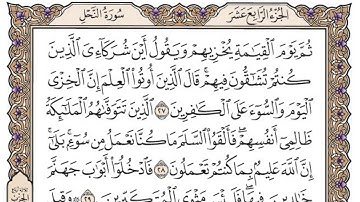 الجزء الرابع عشر سورة النحل
ثُمَّ يَوْمَ الْقِيَٰمَةِ يُخْزِيهِمْ وَيَقُولُ أَيْنَ شُرَكَآءِىَ الَّذِينَ
كُنتُمْ تُشَٰٓقُّونَ فِيهِمْ ۚ قَالَ الَّذِينَ أُوتُوا۟ الْعِلْمَ إِنَّ الْخِزْىَ
الْيَوْمَ وَالسُّوٓءَ عَلَى الْكَٰفِرِينَ ٢٧ الَّذِينَ تَتَوَفَّىٰهُمُ الْمَلَٰٓئِكَةُ
ظَالِمِىٓ أَنفُسِهِمْ ۖ فَأَلْقَوُا۟ السَّلَمَ مَا كُنَّا نَعْمَلُ مِن سُوٓءٍۭ ۚ بَلَىٰٓ
إِنَّ اللَّهَ عَلِيمٌۢ بِمَا كُنتُمْ تَعْمَلُونَ ٢٨ فَادْخُلُوٓا۟ أَبْوَٰبَ جَهَنَّمَ
خَٰلِدِينَ فِيهَا ۖ فَلَبِئْسَ مَثْوَى الْمُتَكَبِّرِينَ ٢٩ وَقِيلَ